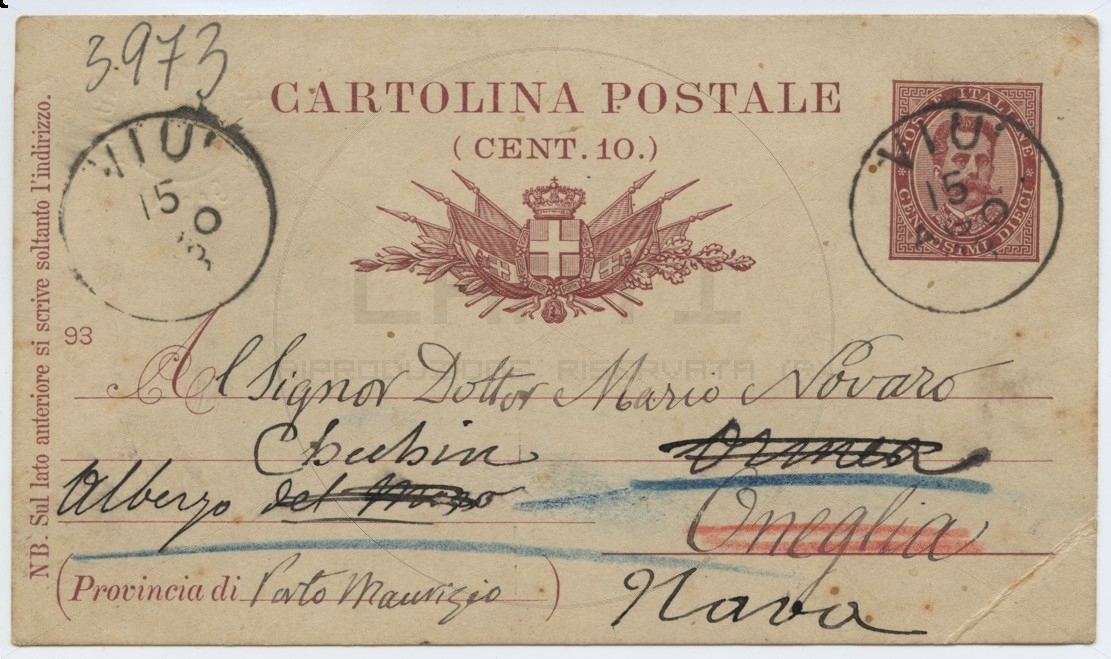 3973
CARTOLINA POSTALE
(CENT. 10.)
POSTE ITALIANE
CENTESIMI DIECI
VIU'
15
VIU'
15
NB. Sul lato anteriore si scrive soltanto l'indirizzo.
93
RIPRODUZIONE RISERVATA
Al Signor Dottor Mario Novaro
Ormea
Albergo del
Oneglia
(Provincia di Porto Maurizio)
Nava